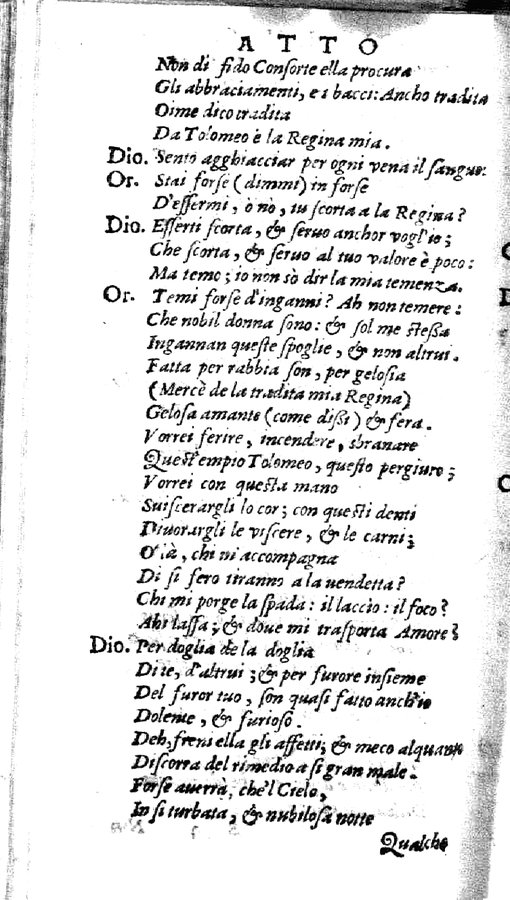 ATTO
Non di fido Consorte ella procura
Gli abbracciamenti, e i bacci: Ancho tradita
Oime dico tradita
Da Tolomeo è la Regina mia.
Dio. Sento agghiacciar per ogni vena il sangue.
Or. Stai forse (dimmi) in forse
D'essermi, ò nò, tu scorta a la Regina?
Dio. Esserti scorta, & seruo anchor vogl'io;
Che scorta, & seruo al tuo valore è poco:
Ma temo; io non sò dir la mia temenza.
Or. Temi forse d'inganni? Ah non temere:
Che nobil donna sono: & sol me stessa
Ingannan queste spoglie, & non altrui.
Fatta per rabbia son, per gelosia
(Mercè de la tradita mia Regina)
Gelosa amante (come dissi) & fera.
Vorrei ferire, incendere, sbranare
Quest'empio Tolomeo, questo pergiuro;
Vorrei con questa mano
Suiscerargli lo cor; con questi denti
Diuorargli le viscere, & le carni;
O là, chi m'accompagna
Di sì fero tiranno a la uendetta?
Chi mi porge la spada: il laccio: il foco?
Ahi lassa; & doue mi trasporta Amore?
Dio. Per doglia de la doglia
Di te, d'altrui; & per furore insieme
Del furor tuo, son quasi fatto anch'io
Dolente, & furioso.
Deh, freni ella gli affetti; & meco alquanto
Discorra del rimedio a si gran male.
Forse auerrà, che'l Cielo,
In si turbata, & nubilosa notte
Qualche